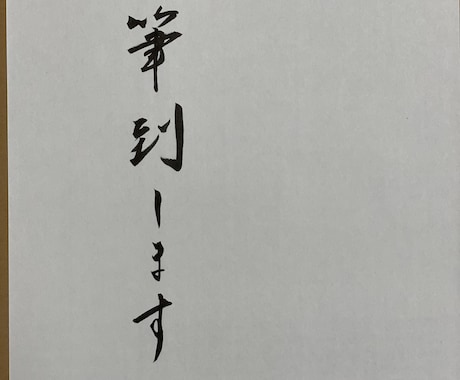 筆到します